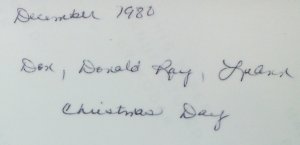 December 1980
Don, Donald Ray, Lyann
Christmas Day